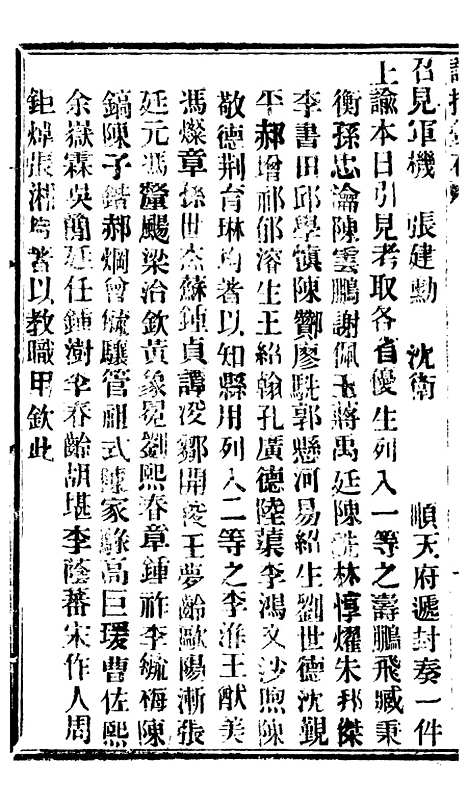 召見軍機　張建勳　沈衛　順天府遞封奏一件
上諭本日引見考取各省優生列入一等之壽鵬飛臧秉
衡孫忠瀹陳雲鵬謝佩玉蔣禹廷陳洗林惇燿朱邦傑
李書田邱學愼陳鄼廖駫郭懸河易紹生劉世德沈覲
平郝增祁郁濬生王紹翰孔廣德陸蘂李鴻文沙煦陳
敬德荆育琳均著以知縣用列入二等之李淮王猷美
馮燦章孫世杰蘇鍾貞譚浚鄒開浚王夢齡歐陽漸張
廷元馮釐颺梁治欽黃象冕劉熙春章鍾祚李毓梅陳
鎬陳子鍇郝炯曾毓驤管祖式陳家騄高巨瑗曹佐熙
余嶽霖吳簡廷任鍾澍伞春齡胡堪李蔭蕃宋作人周
鉅煒張湘均著以教職用欽此